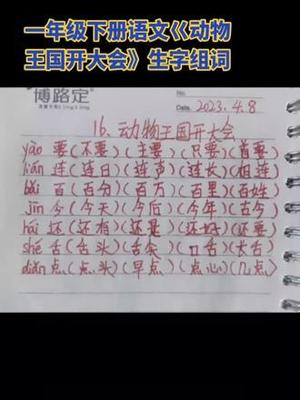 一年级下册语文《动物
王国开大会》生字组词
博路定
Date. 2023.4.8
16.动物王国开大会
yào 要(不要)(主要)(只要)(首要)
lián 连(连日)(连声)(连长)(相连)
bǎi 百(百分)(百万)(百里)(百姓)
jīn 今(今天)(今后)(今年)(古今)
hái 还(还有)(还是)(还好)(还要)
shé 舌(舌头)(舌尖)(口舌)(长舌)
diǎn 点(点头)(早点)(点心)(几点)